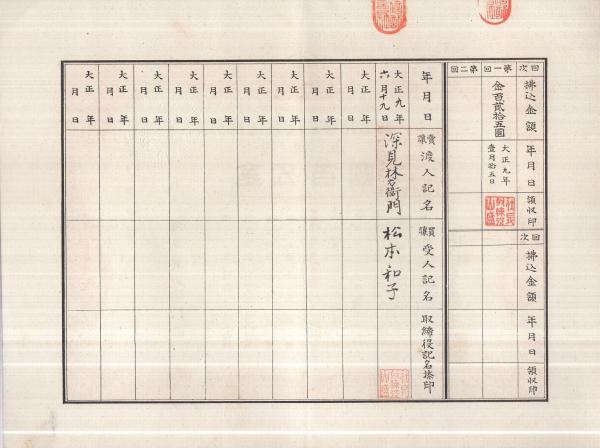 回次
拂込金額
年月日
領収印
回次
拂込金額
年月日
領収印
第一回
金百貳拾五圓
大正九年
壹月拾五日
第二回
年月日
賣讓渡人記名
買讓受人記名
取締役記名捺印
大正九年
六月十九日
深見林右衛門
松本和子
大正 年
月 日
大正 年
月 日
大正 年
月 日
大正 年
月 日
大正 年
月 日
大正 年
月 日
大正 年
月 日
大正 年
月 日
大正 年
月 日